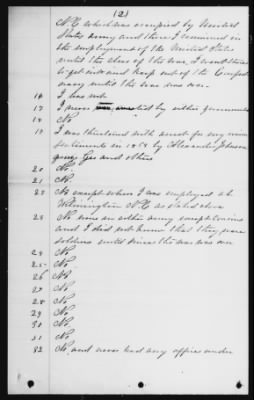 (2)
N.C. which was occupied by United
States army and there I remained in
the employment of the United States
until the close of the war, I went there
to get into and keep out of the Confed
eracy until the war was over.
16 I was not
17 I never by either government
18 No
19 I was threatened with arrest for my union
sentiments in 1861 by Alexander Johnson
and others
20 No.
21 No.
22 No except when I was employed at
Wilmington N.C. as stated above
23 No none in either army except cousins
and I did not know that they were
soldiers until since the war was over
24 No.
25 No
26 No
27 No
28 No.
29 No
30 No.
31 No
32 No, and never had any office under